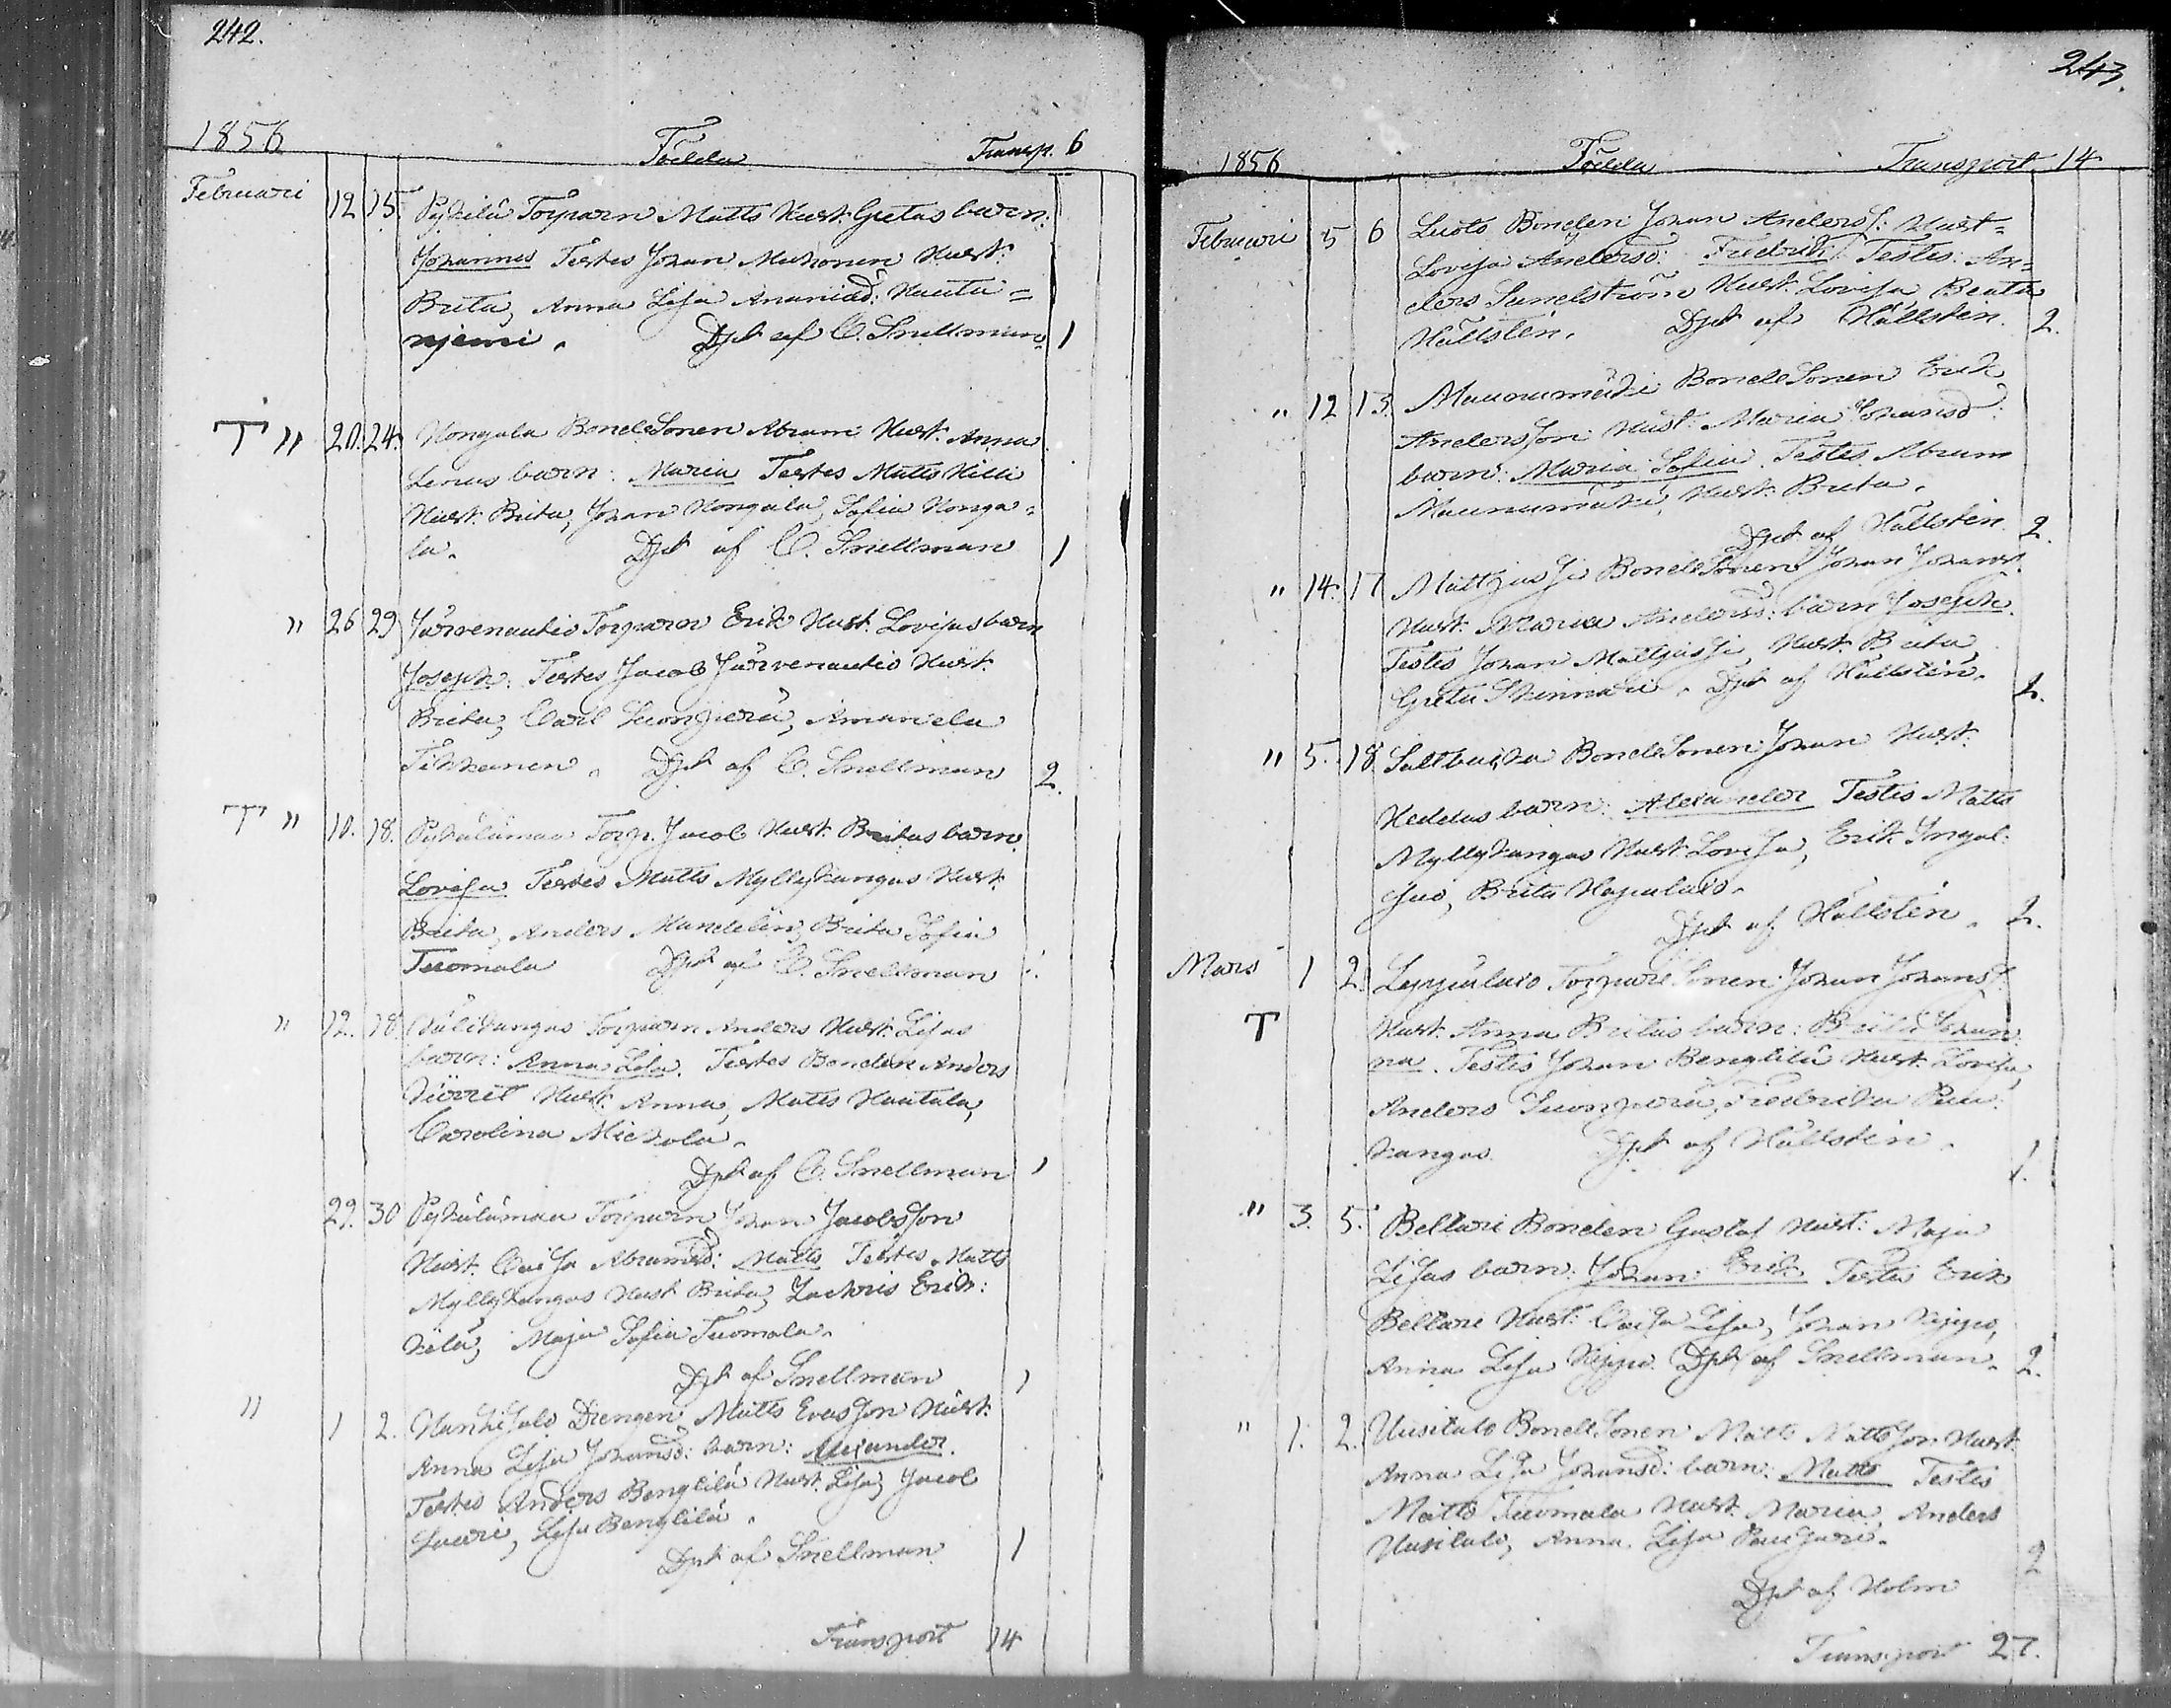 242.
1856 Födda Transp. 6
Februari 12 15. Pyhälä Torparn Matts Hust. Gretas barn:
Johannes Testes Johan Muhonen Hust.
Brita, Anna Lisa Ananiad: Hauta=
njemi. Dpt af C. Snellman 1
T " 20. 24. Hongala BondeSonen Abram Hust. Anna
Lenas barn: Maria Testes Matts Hilli
Hust. Brita, Johan Hongala, Sofia Honga=
la. Dpt af C. Snellman 1
" 26 29 Järvenautio Torparn Erik Hust. Lovisas barn
Joseph. Testes Jacob Järvenautio Hust.
Brita, Carl Suonperä, Amanda
Tikkanen. Dpt af C. Snellman 2.
T " 10. 18. Pykälämaa Torp. Jacob Hust. Britas barn
Lovisa Testes Matts Myllykangas Hust.
Brita, Anders Mandelin, Brita Sofia
Tuomala Dpt af C. Snellman
" 12. 18. Välikangas Torparn Anders Hust. Lisas
barn: Anna Lisa. Testes Bonden Anders
Hust. Anna, Matts Hautala,
Carolina Mickola.
Dpt af C. Snellman 1
29. 30 Pykälämaa Torparn Johan Jacobsson
Hust. Caisa Abramsd: Matts Testes Matts
Myllykangas Hust Brita, Zachris Erik:
kilä, Maja Sofia Tuomala.
Dpt af Snellman 1
" 1 2. Hankisalo Drengen Matts Evasson Hust.
Anna Lisa Johansd: barn: Alexander.
Testes Anders Bengtilä Hust. Lisa, Jacob
Lauri, Lisa Bengtilä.
Dpt af Snellman 1
Transport 14
243.
1856 Födda Transport 14
Februari 5 6 Luoto Bonden Johan Anderss: Hust=
Lovisa Andersd: Fredrik. Testes: An=
ders Sundström Hust. Lovisa, Beata
Hällstén. Dpt af Hällstén. 2.
" 12 13. Maunumäki BondeSonen Erik
Andersson Hust. Maria Johansd:
barn: Maria Sofia. Testes Abram
Maunumäki, Hust. Brita.
Dpt af Hällstén. 2.
" 14. 17 BondeSonen Johan Johans.
Hust. Maria Andersd: barn Joseph.
Testes Johan Hust. Brita,
Greta Skinnari. Dpt af Hällstén. 2.
" 5. 18. Saltbacka BondeSonen Johan Hust.
Heddas barn: Alexander Testes Matts
Myllykangas Hust. Lovisa, Erik Yngal:
suo, Brita Hajulaio.
Dpt af Hällstén. 2.
Mars 1 2. TorpareSonen Johan Johans.
T Hust. Anna Britas barn: Brita Johan
na. Testes Johan Bengtilä Hust. Lovisa,
Anders Suonperä, Fredrika Puu:
kangas. Dpt af Hällstén. 1.
" 3. 5. Beltari Bonden Gustaf Hust: Maja
Lisas barn: Johan Erik Testes Erik
Beltari Hust. Caisa Lisa, Johan Kippo,
Anna Lisa Kippo. Dpt af Snellman. 2.
" 1. 2. Uusitalo BondeSonen Matts Mattsson Hust
Anna Lisa Johansd: barn: Matts Testes
Matts Tuomala Hust. Maria, Anders
Uusitalo, Anna Lisa Pausari.
2
Dpt af Holm
Transport 27.